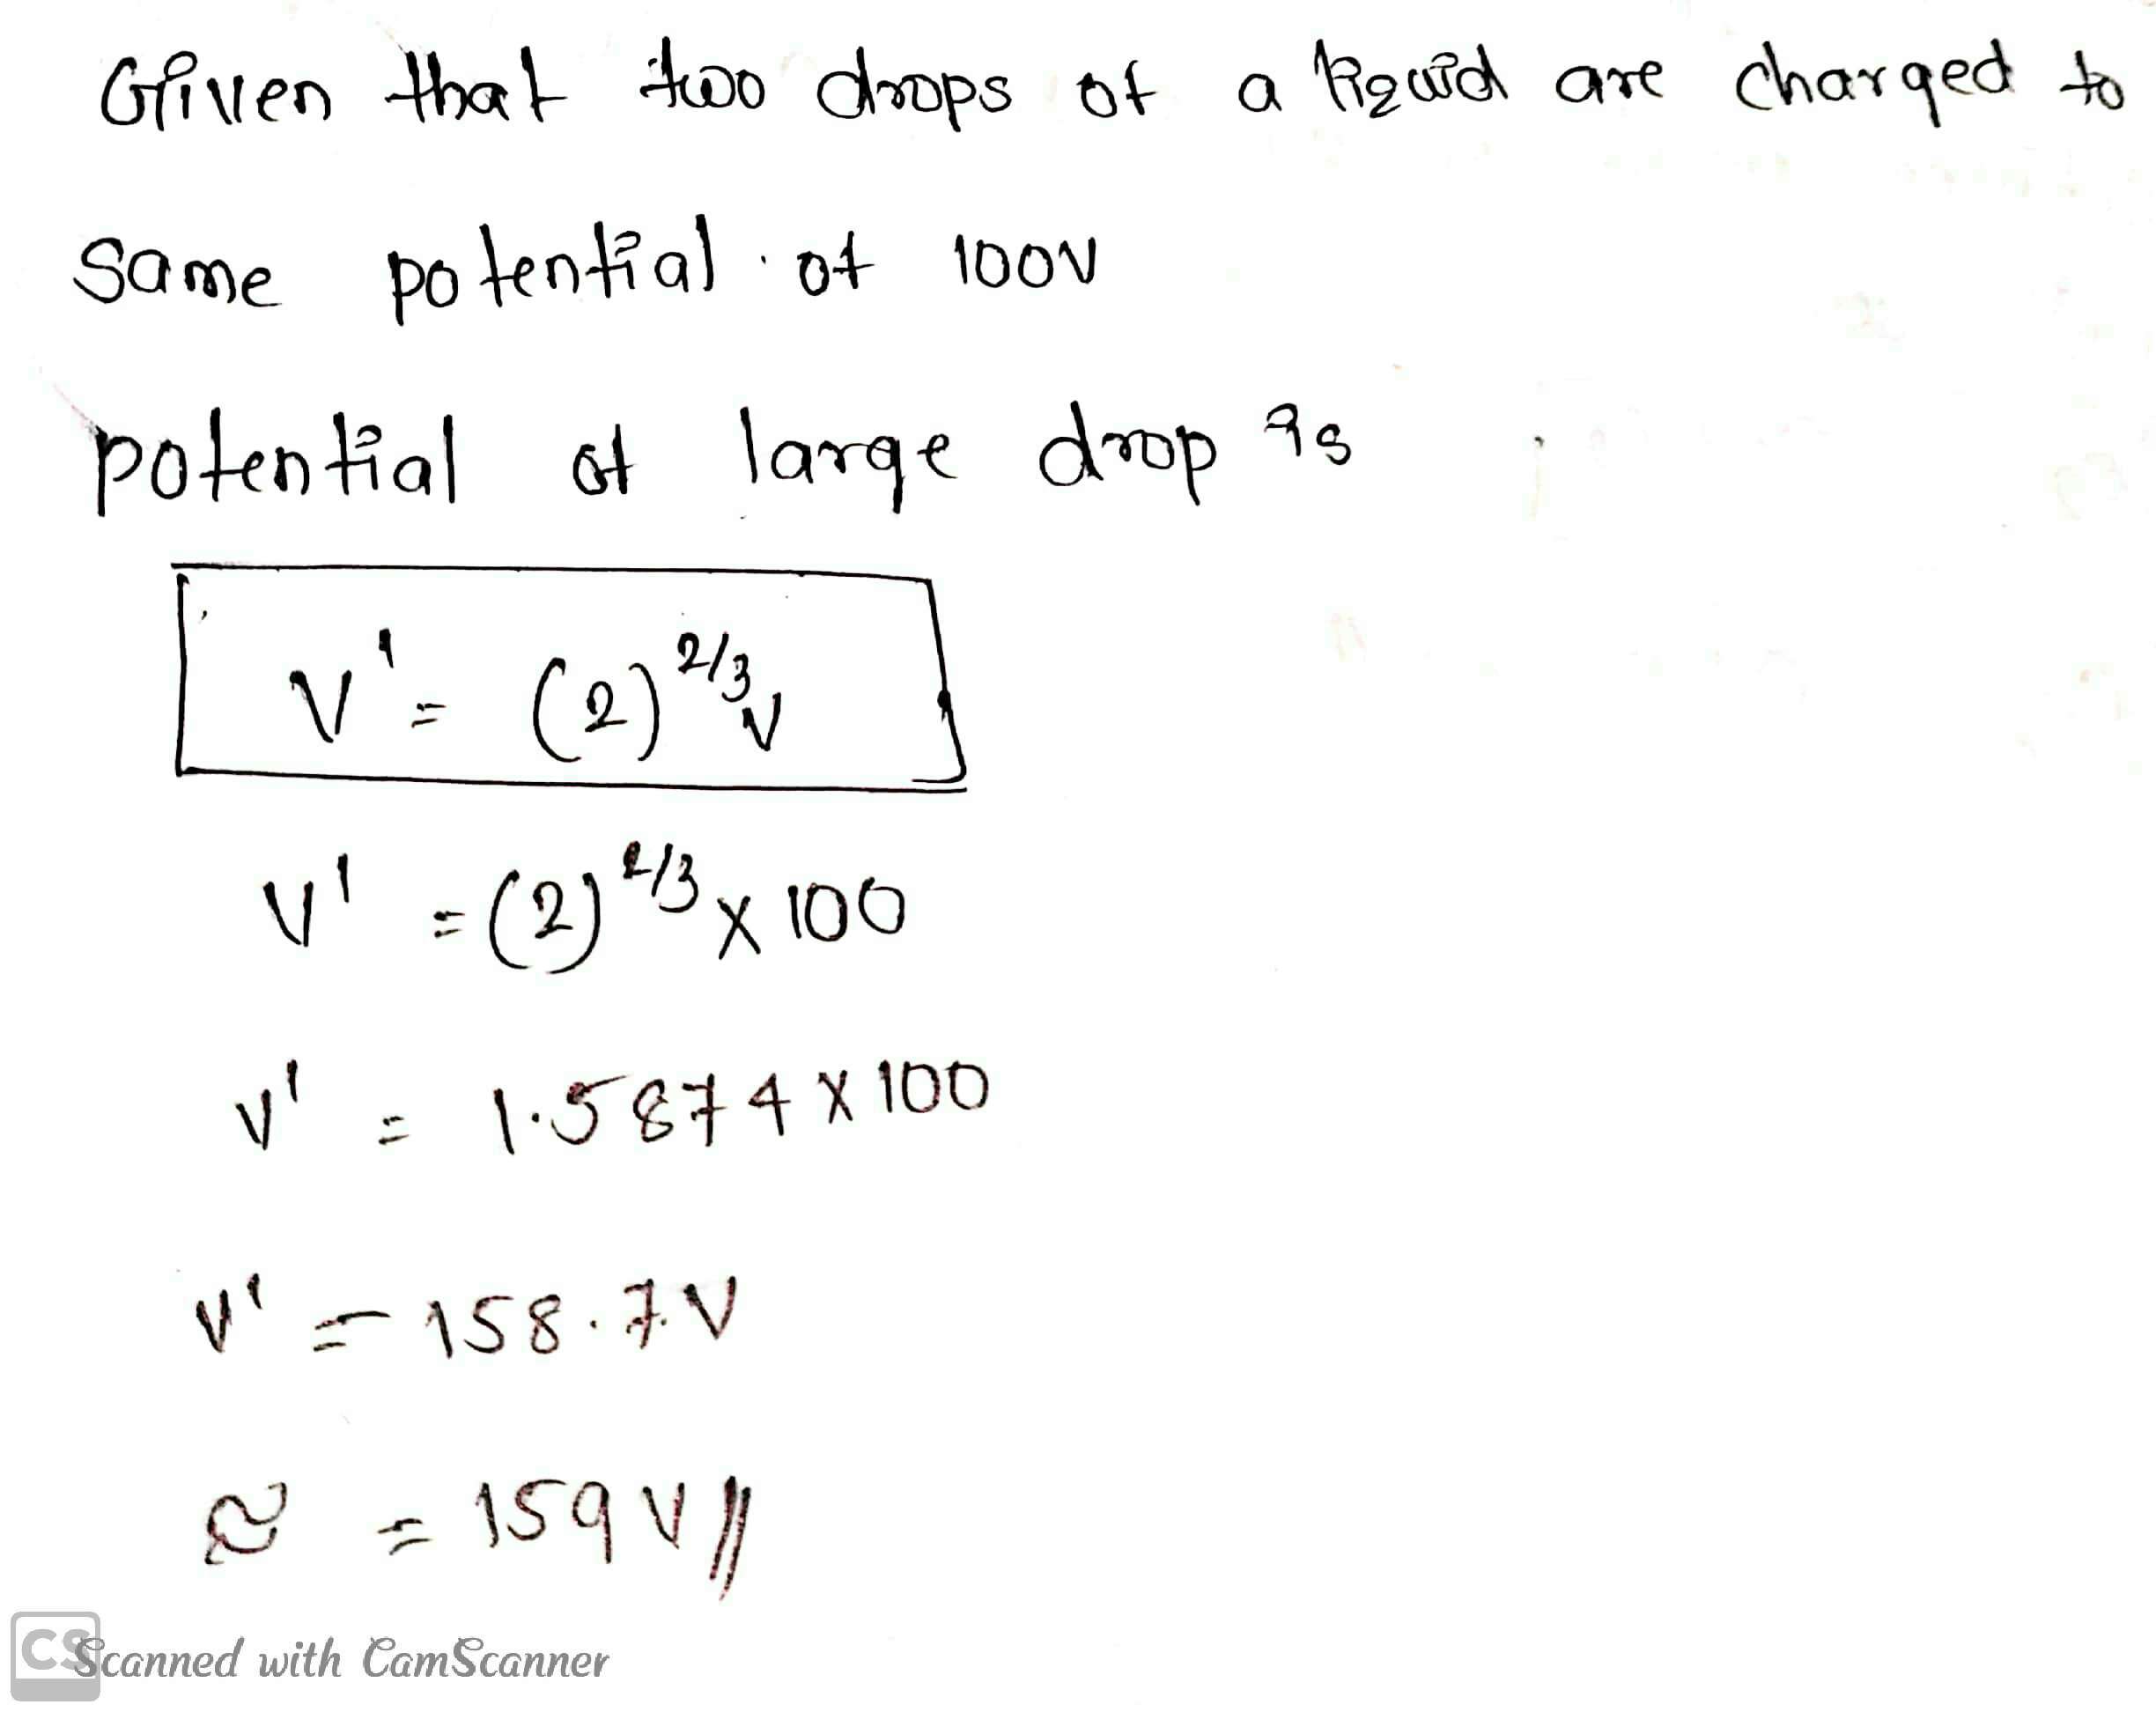 Given that two drops of a liquid are charged to
same potential of 100V
potential of large drop is
V' = (2)^2/3 V
V' = (2)^2/3 x 100
V' = 1.5874 x 100
V' = 158.7 V
≈ = 159 V //
CS Scanned with CamScanner